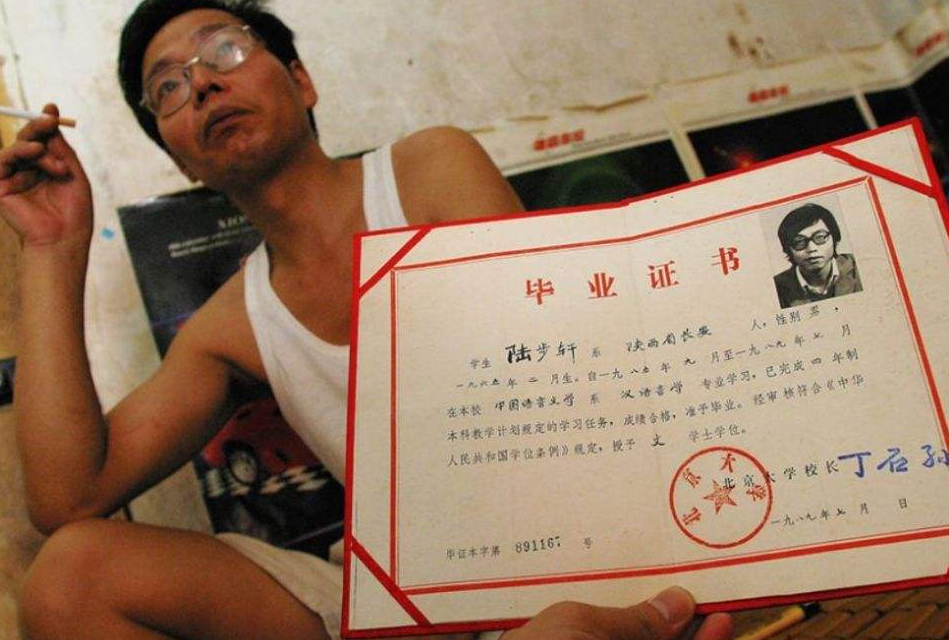 毕业证书
学生 陆步轩 系 陕西省长安 人，性别 男，
一九六五年 二 月生。自一九八五年 九 月至一九八九年 七 月
在本校 中国语言文学 系 汉语言学 专业学习，已完成四年制
本科教学计划规定的学习任务，成绩合格，准予毕业。经审核符合《中华
人民共和国学位条例》规定，授予 文 学士学位。
北京大学校长 丁石孙
北京大学
一九八九年七 月 日
毕证本字第 891167 号